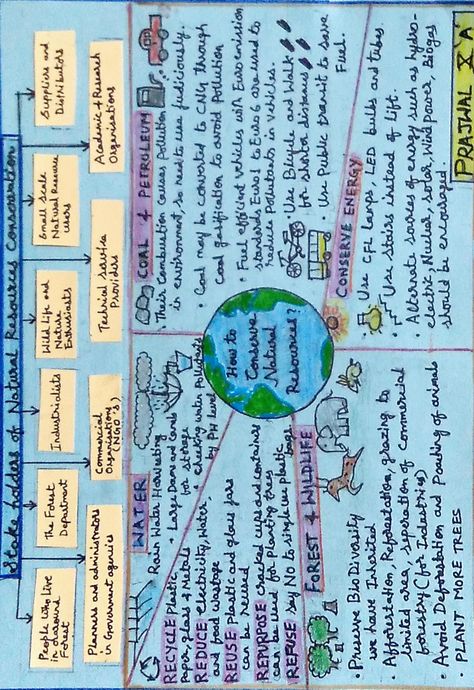 Stake holders of Natural Resources Conservation
People who live
in and around
Forest
The Forest
Department
Industrialists
Wild life and
Nature
Enthusiasts
Small Scale
Natural Resource
users
Suppliers and
Distributors
Planners and administrators
in Government agencies
Commercial
Organisations
(NGO's)
Technical Service
Providers
Academic & Research
Organisations
WATER
Rain Water Harvesting
• Large Dams and Canals
for storage
• checking water Pollutants
by PH level
RECYCLE Plastic
Paper, glass & Metals
REDUCE electricity, Water,
and food wastage
REUSE Plastic and glass jars
can be reused
REPURPOSE cracked cups and containers
can be used for planting trees
REFUSE say NO to single use plastic
bags.
COAL & PETROLEUM
• Their Combustion Causes Pollution
in environment, so need to use judiciously.
• Coal may be converted to CNG through
Coal gasification to avoid Pollution
• Fuel efficient vehicles with Euro emission
standards Euro 1 to Euro 6 are used to
reduce Pollutants in Vehicles.
Use Bicycle and Walk
for shorter distances
Use Public transit to save
Fuel.
How to
Conserve
Natural
Resources?
FOREST & WILDLIFE
• Preserve BioDiversity
we have Inherited
• Afforestation, Reforestation, grazing to
limited area, separation of Commercial
forestry (for Industries)
• Avoid Deforestation and Poaching of animals
• PLANT MORE TREES
CONSERVE ENERGY
• Use CFL lamps, LED bulbs and tubes.
• Use stairs instead of lift.
• Alternate sources of energy such as hydro-
electric, Nuclear, solar, Wind Power, Biogas
should be encouraged.
PRAJWAL X'A